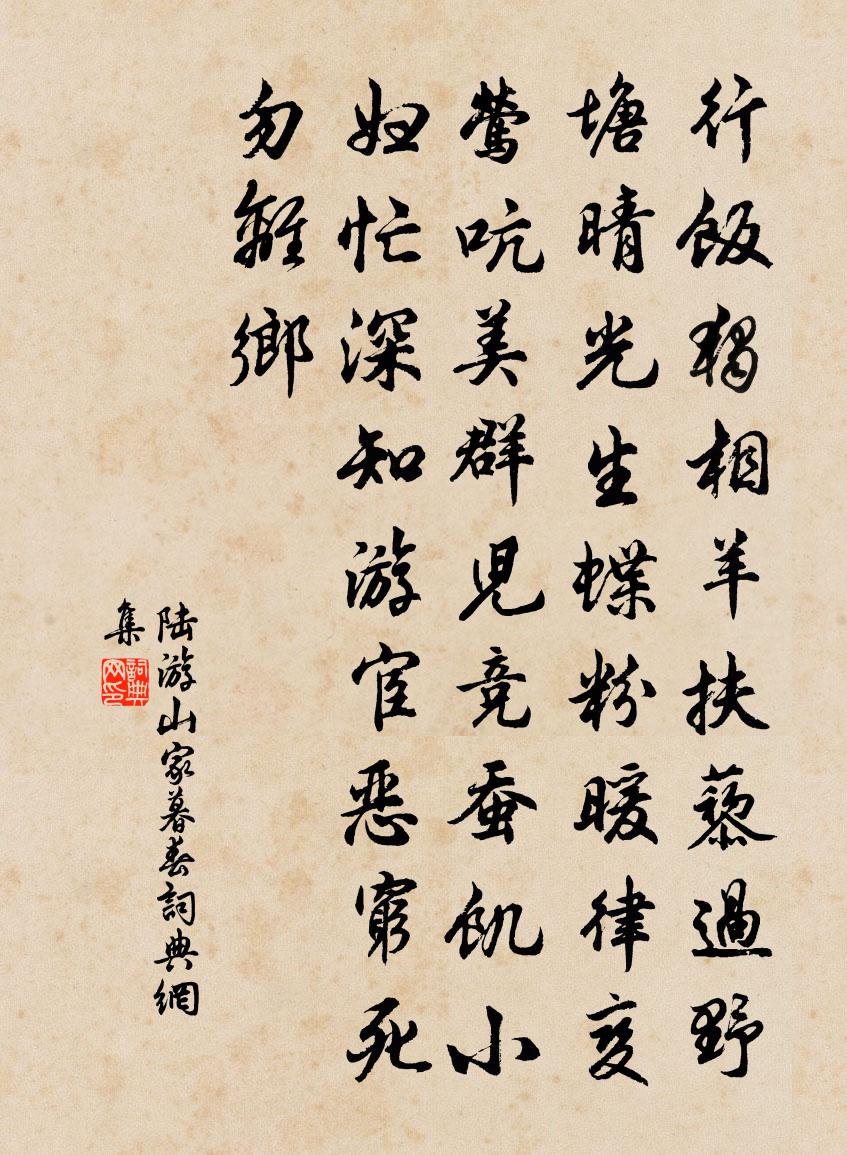 行飯獨相羊扶藜過野
塘晴光生蝶粉暖律变
鶯吭美群児竞蚕飢小
妇忙深知游宦恶窮死
勿離鄉
陆游山家暮春詞典網
集
詞典网印